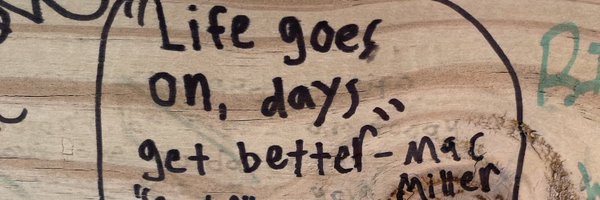 "Life goes
on, days
get better" - Mac
Miller